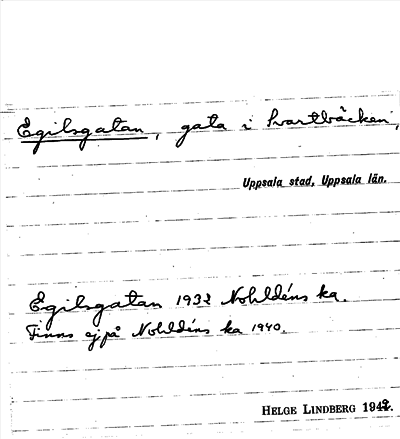 Egilsgatan, gata i Svartbäcken,
Uppsala stad, Uppsala län.
Egilsgatan 1932 Nohldéns ka.
Finns ej på Nohldéns ka 1940.
HELGE LINDBERG 1942.